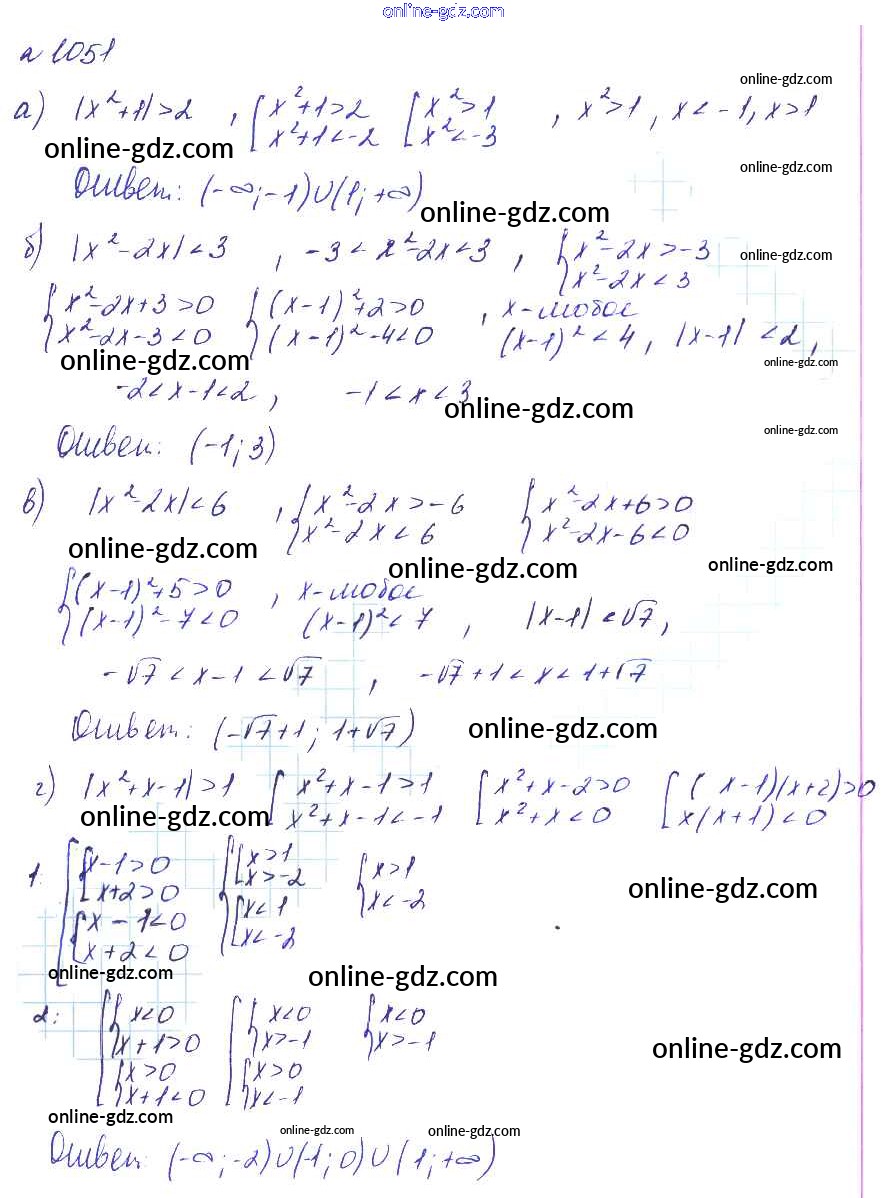 online-gdz.com
№ 1051
online-gdz.com
а) |x²+1|>2 , [x²+1>2 [x²>1 , x²>1 , x<-1, x>1
x²+1<-2 x²<-3
online-gdz.com
online-gdz.com
Ответ: (-∞;-1)∪(1;+∞)
online-gdz.com
б) |x²-2x|<3 , -3<x²-2x<3 , {x²-2x>-3
x²-2x<3
online-gdz.com
{x²-2x+3>0 {(x-1)²+2>0 , x-любое
x²-2x-3<0 (x-1)²-4<0 (x-1)²<4, |x-1|<2,
online-gdz.com
online-gdz.com
-2<x-1<2, -1<x<3
online-gdz.com
online-gdz.com
Ответ: (-1;3)
в) |x²-2x|<6 , {x²-2x>-6 {x²-2x+6>0
x²-2x<6 x²-2x-6<0
online-gdz.com
online-gdz.com
online-gdz.com
{(x-1)²+5>0 , x-любое
(x-1)²-7<0 (x-1)²<7 , |x-1|<√7,
-√7<x-1<√7 , -√7+1<x<1+√7
Ответ: (-√7+1; 1+√7)
online-gdz.com
г) |x²+x-1|>1 [x²+x-1>1 [x²+x-2>0 [(x-1)(x+2)>0
x²+x-1<-1 x²+x<0 x(x+1)<0
online-gdz.com
1. [{x-1>0 {[x>1 {x>1
x+2>0 x>-2 x<-2
{x-1<0 [x<1
x+2<0 x<-2
online-gdz.com
online-gdz.com
online-gdz.com
2: [{x<0 [{x<0 {x<0
x+1>0 x>-1 x>-1
{x>0 {x>0
x+1<0 x<-1
online-gdz.com
online-gdz.com
online-gdz.com
online-gdz.com
Ответ: (-∞;-2)∪(-1;0)∪(1;+∞)